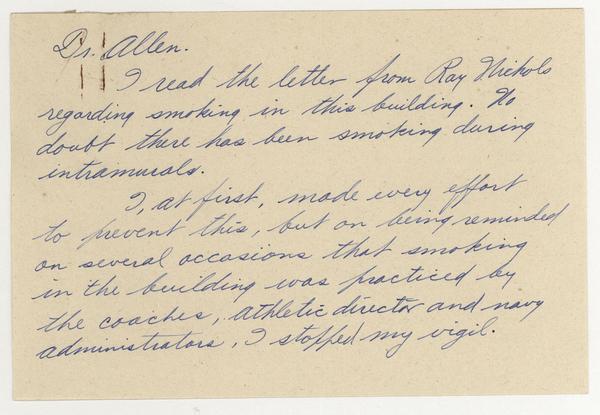 Dr. Allen.
I read the letter from Ray Nichols
regarding smoking in this building. No
doubt there has been smoking during
intramurals.
I, at first, made every effort
to prevent this, but on being reminded
on several occasions that smoking
in the building was practiced by
the coaches, athletic director and navy
administrators, I stopped my vigil.